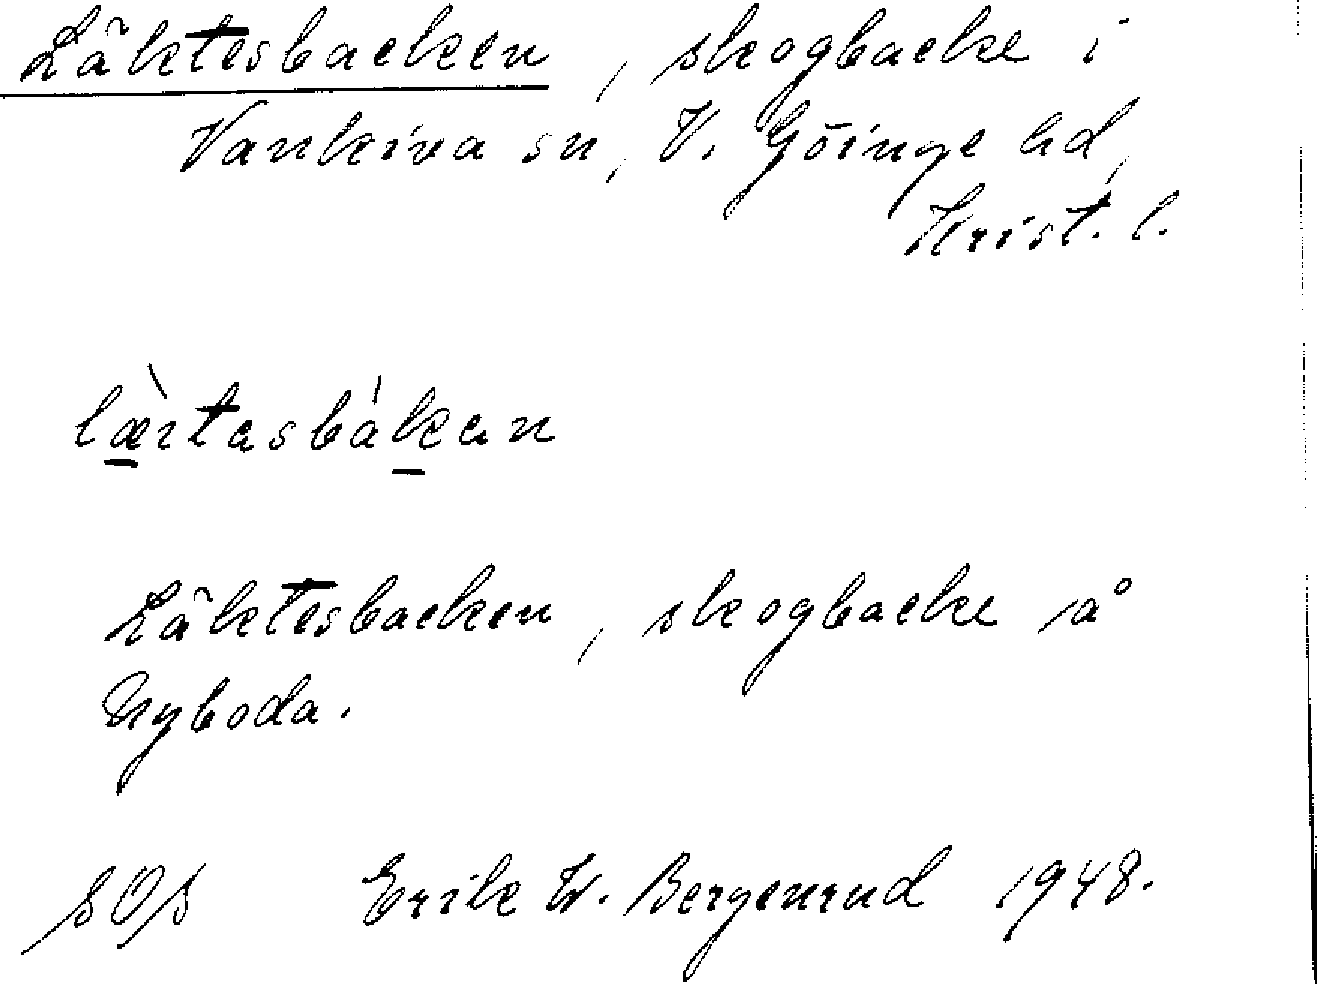 Läktesbacken, skogbacke i
Vankiva sn, V. Göinge hd,
Krist. l.
læ̀ıtasbákan
Läktesbacken, skogbacke å
Nyboda.
SOS Erik W. Bergenrud 1948.